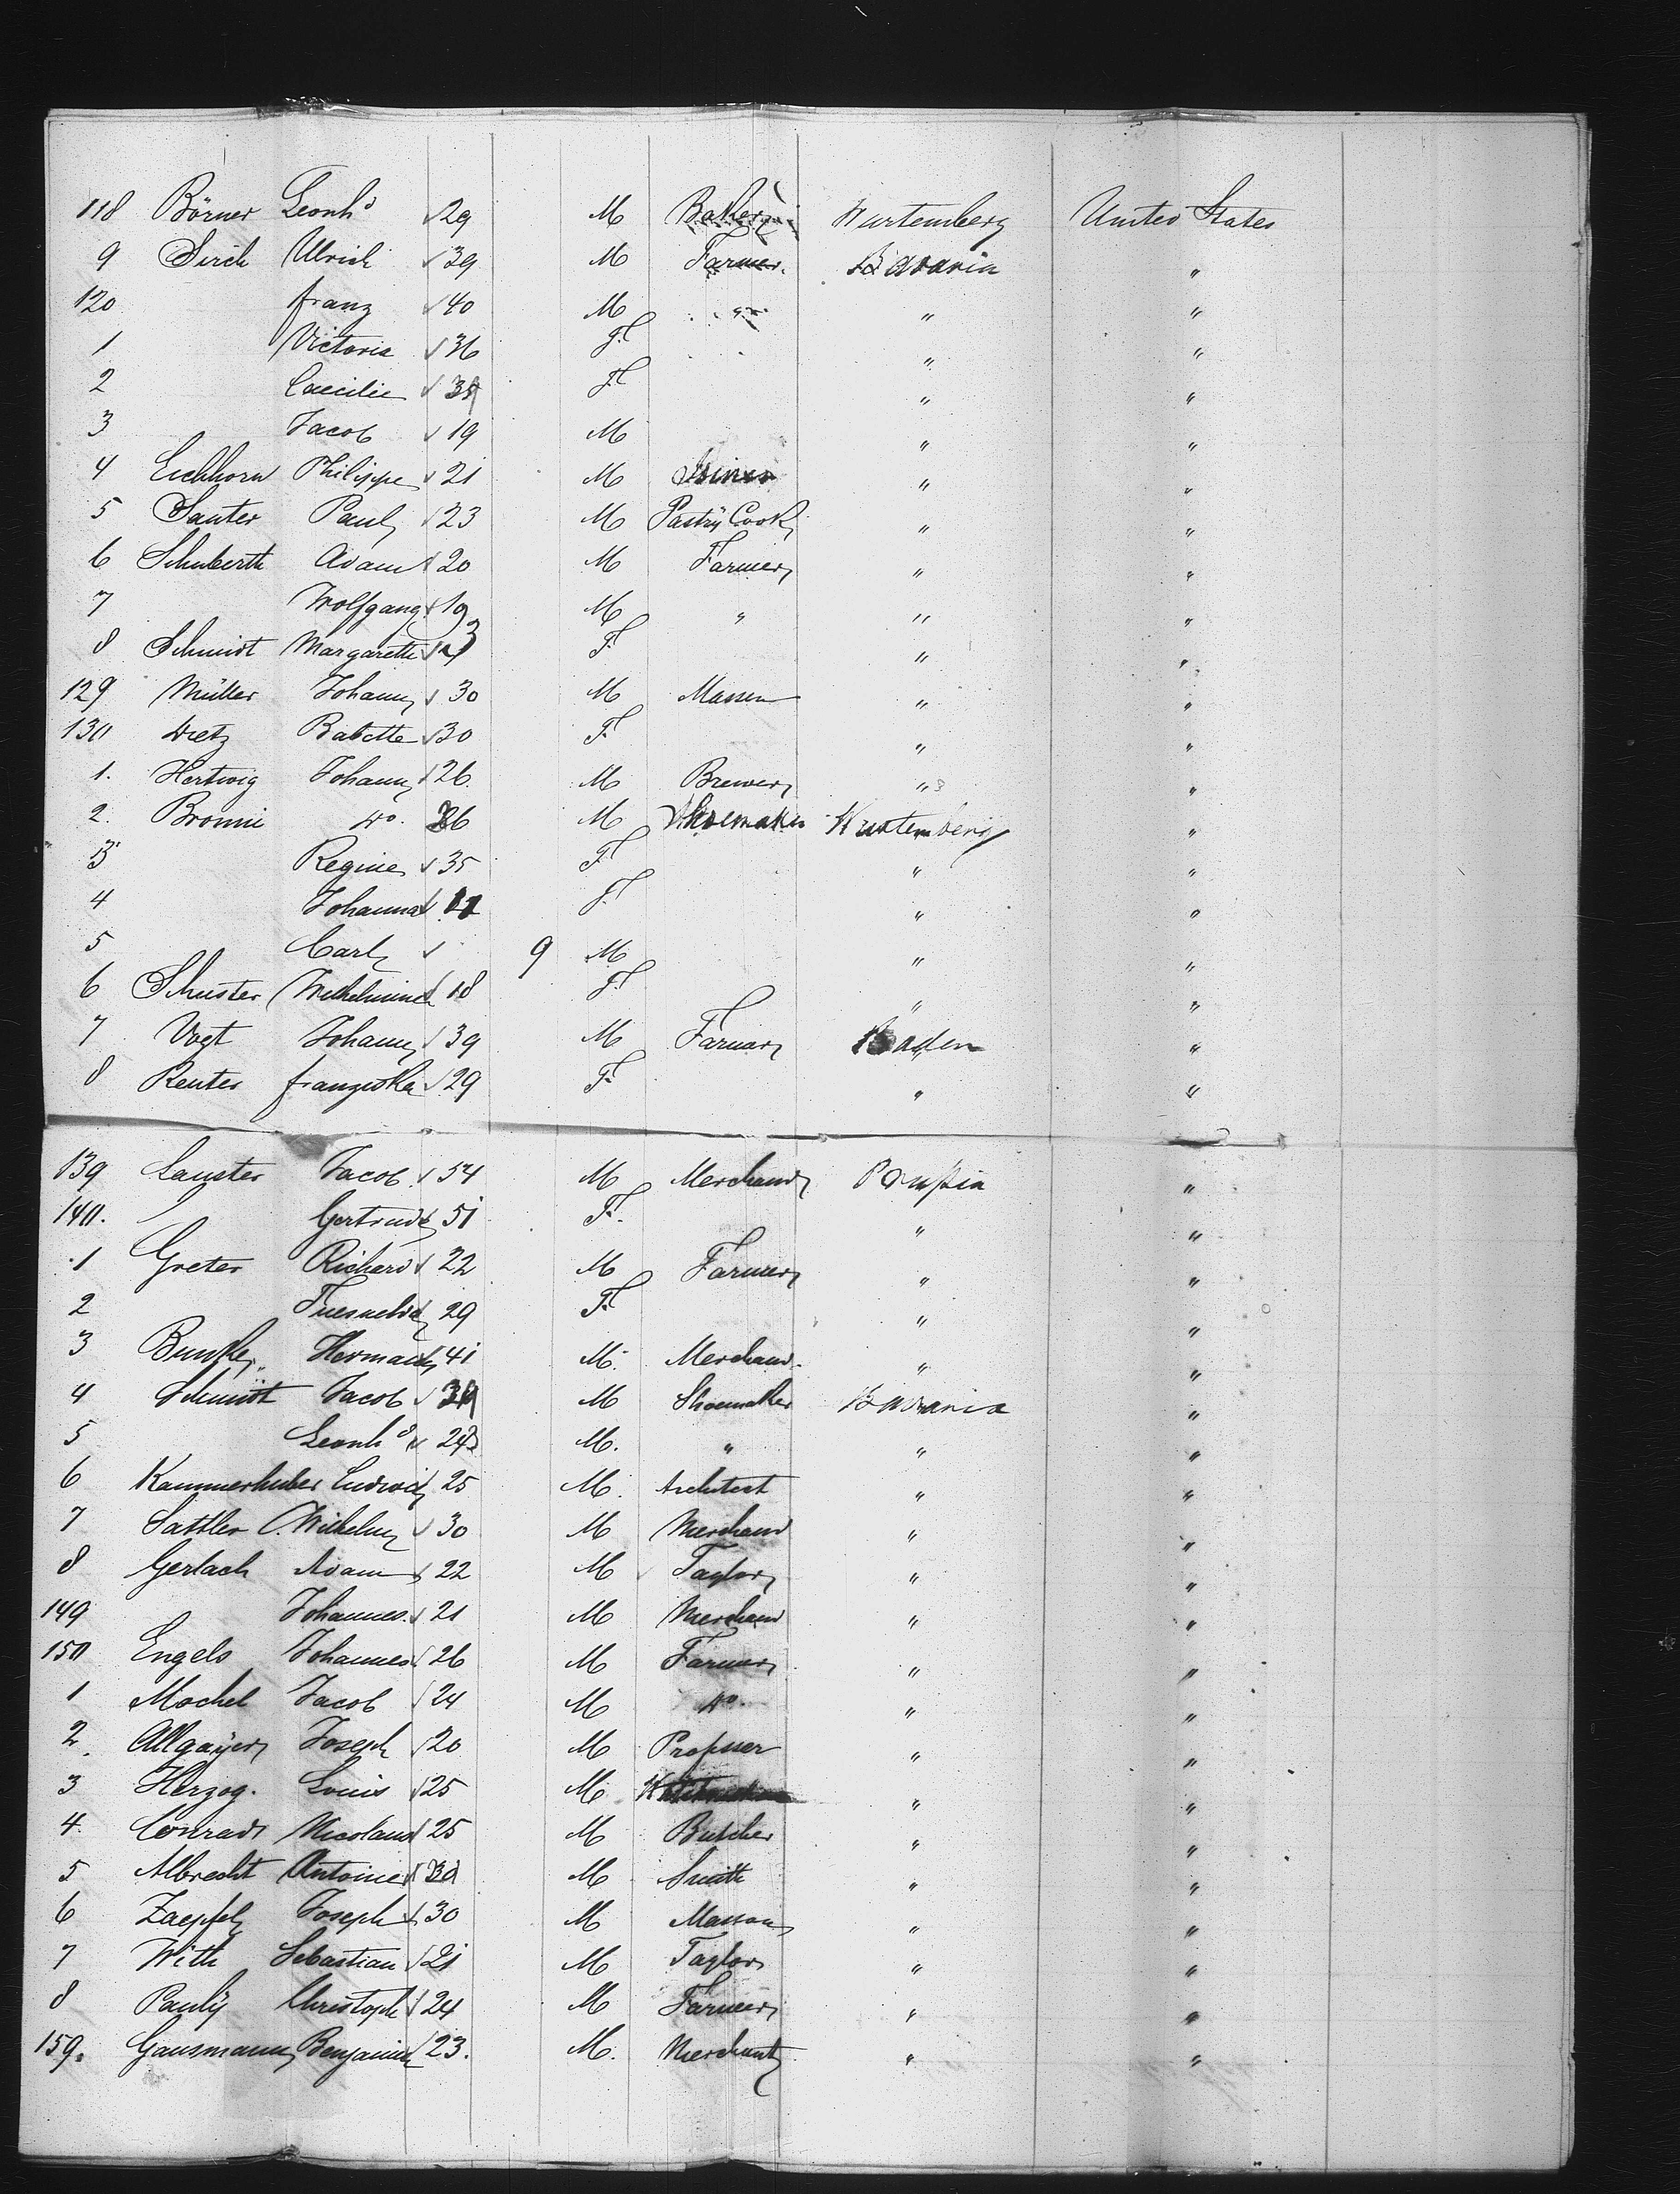 118 Börner Leonhd 29 M Baker Wurtemberg United States
9 Sirch Ulrich 39 M Farmer Bavaria "
120 franz 40 M " " "
1 Victoria 36 F. " "
2 Caecilie F. " "
3 Jacob 19 M " "
4 Eichhorn Philippe 21 M " "
5 Sauter Paul 23 M Pastry Cook " "
6 Schuberth Adam 20 M Farmer " "
7 Wolfgang 19 M " " "
8 Schmidt Margareth F. " "
129 Müller Johann 30 M Masson " "
130 Dietz Babette 30 F. " "
1. Hertwig Johann 26 M Brewer "
2. do. 36 M Shoemaker Wurtemberg "
3 Regine 35 F. " "
4 Johanna 11 F. " "
5 Carl 9 M " "
6 Schuster Wilhelmine 18 F. " "
7 Vogt Johann 39 M Farmer Baden "
8 Reuter franziska 29 F. " "
139 Lauster Jacob 54 M Merchand "
140. Gertrude 51 F. " "
1 Greter Richard 22 M Farmer " "
2 29 F. " "
3 Hermann 41 M. Merchand " "
4 Schmidt Jacob M Shoemaker Bavaria "
5 Leonhd M. " " "
6 Kammerhuber Ludwig 25 M. Architect " "
7 Sattler Wilhelm 30 M Merchand " "
8 Gerlach Adam 22 M Taylor " "
149 Johannes 21 M Merchand " "
150 Engels Johannes 26 M Farmer " "
1 Mochel Jacob 24 M do. " "
2 Allgayer Joseph 20 M " "
3 Herzog. Louis 25 M " "
4. Conrad Nicolaus 25 M Butcher " "
5 Albrecht Antoine 30 M Smith " "
6 Zaepfel Joseph 30 M Masson " "
7 With Sebastian 21 M Taylor " "
8 Pauly Christoph 24 M Farmer " "
159. Gausmann Benjamin 23. M. Merchant " "